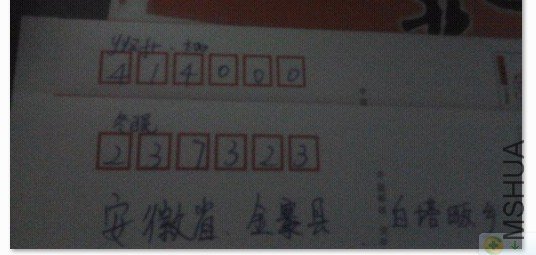 414000
237323
安徽省、金寨县 白塔畈
MSHUA